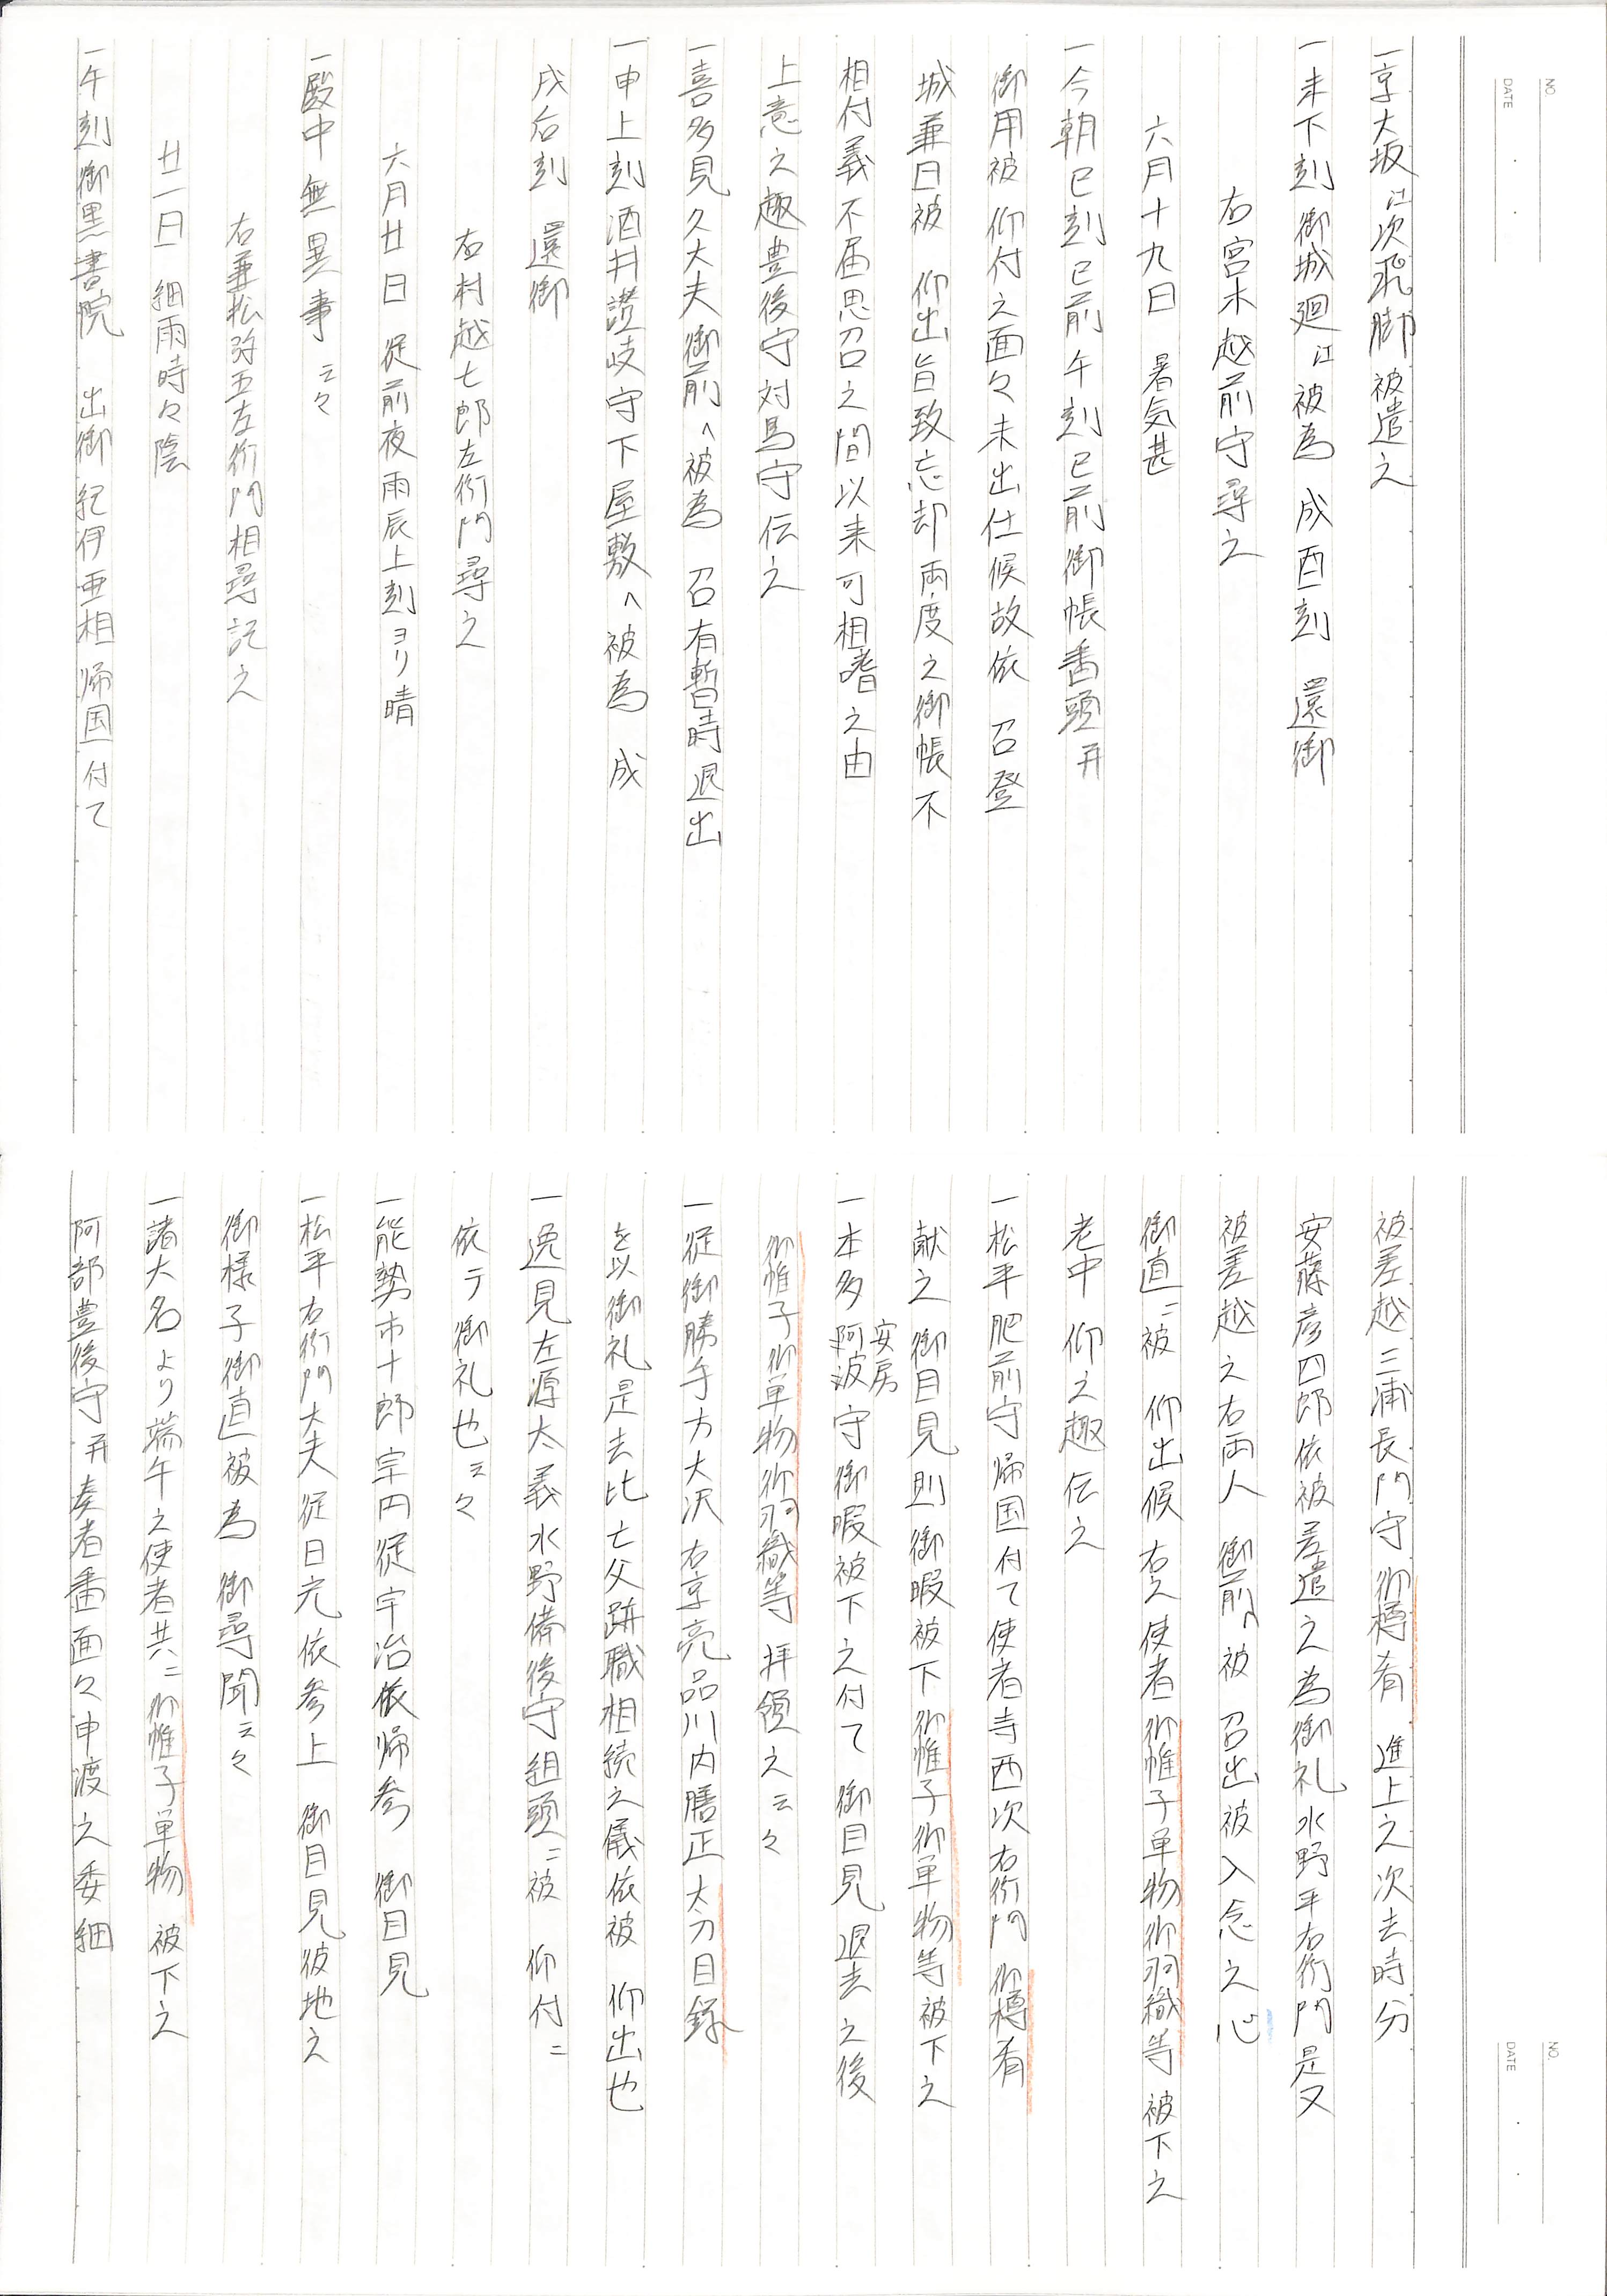 一京大坂江次飛脚被遣之
一未下刻御城廻江被為　成酉刻　還御
右宮木越前守尋之
六月十九日　暑気甚
一今朝巳刻已前午刻已前御帳番頭并
御用被　仰付之面々未出仕候故依　召登
城兼日被　仰出旨致忘却両度之御帳不
相付義不届思召之間以来可相嗜之由
上意之趣豊後守対馬守伝之
一喜多見久大夫御前へ被為　召有暫時退出
一申上刻酒井讃岐守下屋敷へ被為　成
戌后刻　還御
右村越七郎左衛門尋之
六月廿日　従前夜雨辰上刻ヨリ晴
一殿中無異事云々
右兼松弥五左衛門相尋記之
廿一日　細雨時々陰
一午刻御黒書院　出御　紀伊亜相帰国付て
被差越三浦長門守御樽肴　進上之次去時分
安藤彦四郎依被差遣之為御礼水野平右衛門是又
被差越之右両人　御前へ被　召出被入念之心
御直ニ被　仰出候右之使者御帷子単物御羽織等被下之
老中　仰之趣伝之
一松平肥前守帰国付て使者寺西次右衛門御樽肴
献之　御目見則御暇被下御帷子御単物等被下之
一本多阿波守御暇被下之付て　御目見　退去之後
安房
御帷子御単物御羽織等　拝領之云々
一従御勝手方大沢右京亮品川内膳正太刀目録
を以御礼是去比亡父跡職相続之儀依被　仰出也
一逸見左源太義水野備後守組頭ニ被　仰付ニ
依テ御礼也云々
一能勢市十郎宗円従宇治依帰参　御目見
一松平右衛門大夫従日光依参上　御目見彼地之
御様子御直被為　御尋聞云々
一諸大名より端午之使者共ニ御帷子単物　被下之
阿部豊後守并奏者番面々申渡之委細
NO.
DATE
NO.
DATE